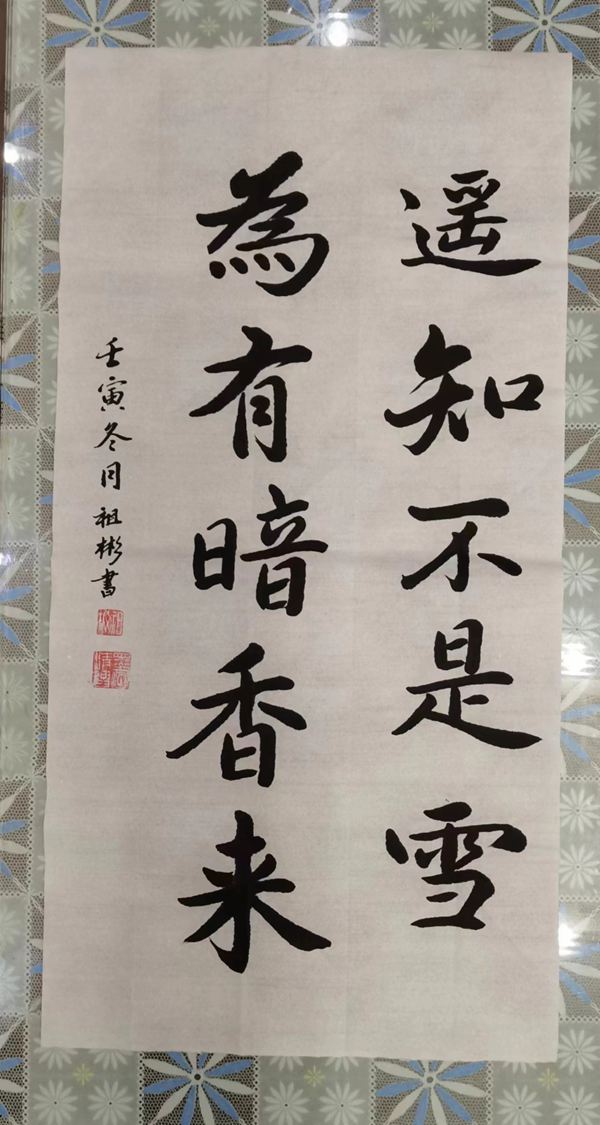 遥知不是雪
為有暗香来
壬寅冬月祖彬書